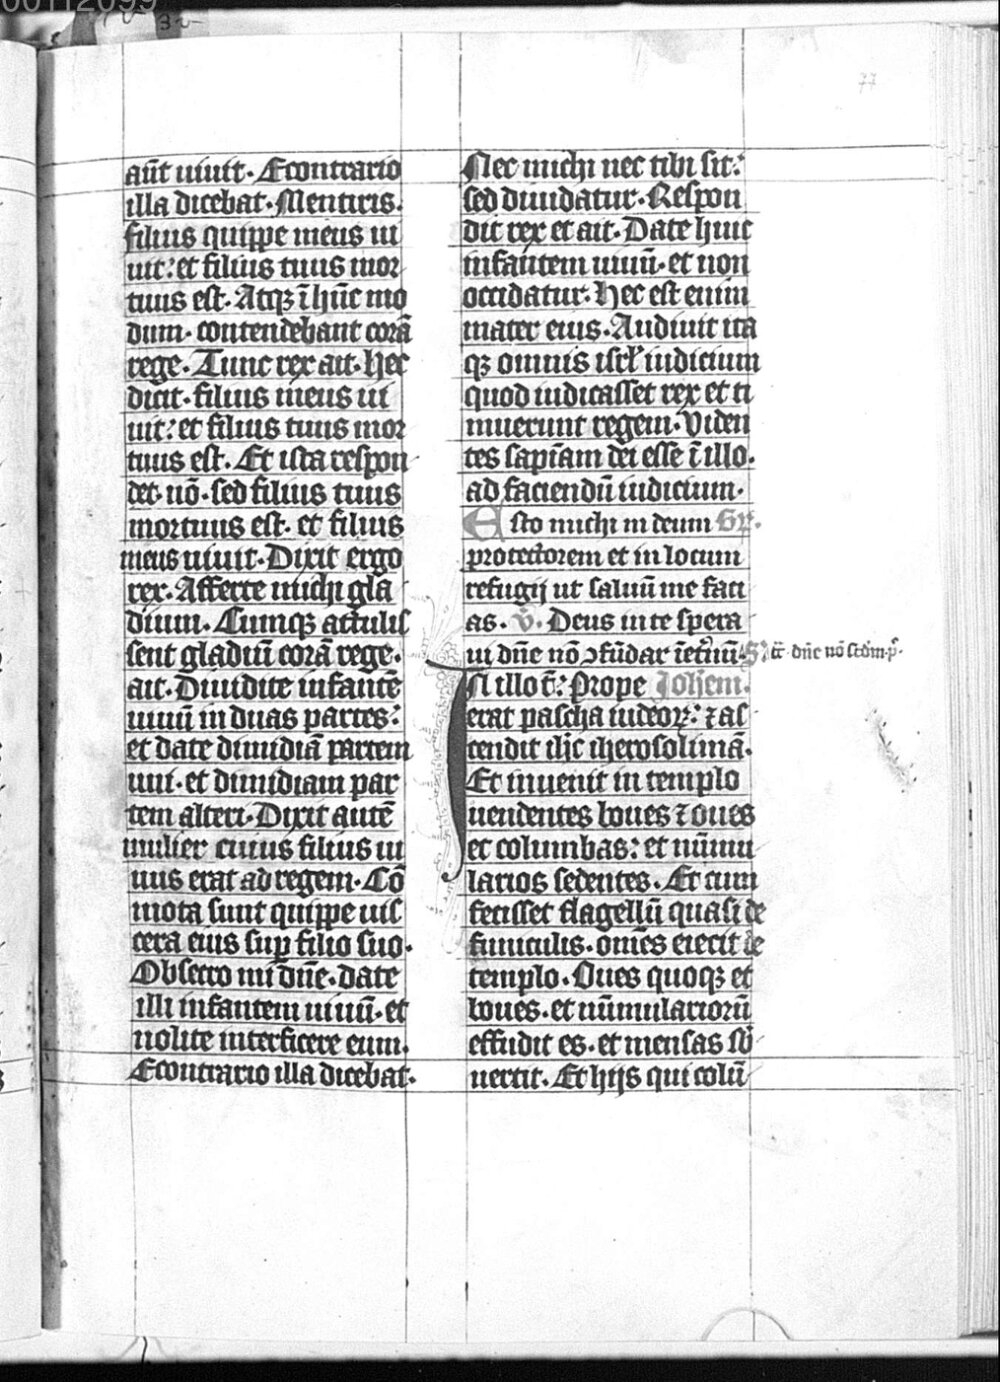 00112099
77
aūt uiuit. Econtrario
illa dicebat. Mentiris.
filius quippe meus ui
uit: et filius tuus mor
tuus est. Atqꝫ ī hūc mo
dum. contendebant corā
rege. Tunc rex ait. Hec
dicit. filius meus ui
uit: et filius tuus mor
tuus est. Et ista respon
det. nō. sed filius tuus
mortuus est. et filius
meus uiuit. Dixit ergo
rex. Afferte michi gla
dium. Cumqꝫ attulis
sent gladiū corā rege.
ait. Diuidite infantē
uiuū in duas partes:
et date dimidiā partem
uni. et dimidiam par
tem alteri. Dixit autē
mulier cuius filius ui
uus erat ad regem. Cō
mota sunt quippe uis
cera eius suꝑ filio suo.
Obsecro mi dn̄e. date
illi infantem uiuū. et
nolite interficere eum.
Econtrario illa dicebat.
Nec michi nec tibi sit:
sed diuidatur. Respon
dit rex et ait. Date huic
infantem uiuū. et non
occidatur. Hec est enim
mater eius. Audiuit ita
qꝫ omnis isrl̓ iudicium
quod iudicasset rex et ti
muerunt regem. Viden
tes sapīam dei esse ī illo.
ad faciendū iudicium.
Esto michi in deum Gr̄.
protectorem et in locum
refugij ut saluū me faci
as. V̄. Deus in te spera
ui dn̄e nō ↄfūdar īet̓nū.
tc̄. dn̄e nō scd̄m. p̄.
IN illo t̄: Prope Joh̄em.
erat pascha iudeoꝝ: ⁊ as
cendit ih̄c iherosolimā.
Et inuenit in templo
uendentes boues ⁊ oues
et columbas: et nūmu
larios sedentes. Et cum
fecisset flagellū quasi de
funiculis. om̄es eiecit de
templo. Oues quoqꝫ et
boues. et nūmulariorū
effudit es. et mensas sb̄
uertit. Et hijs qui colū